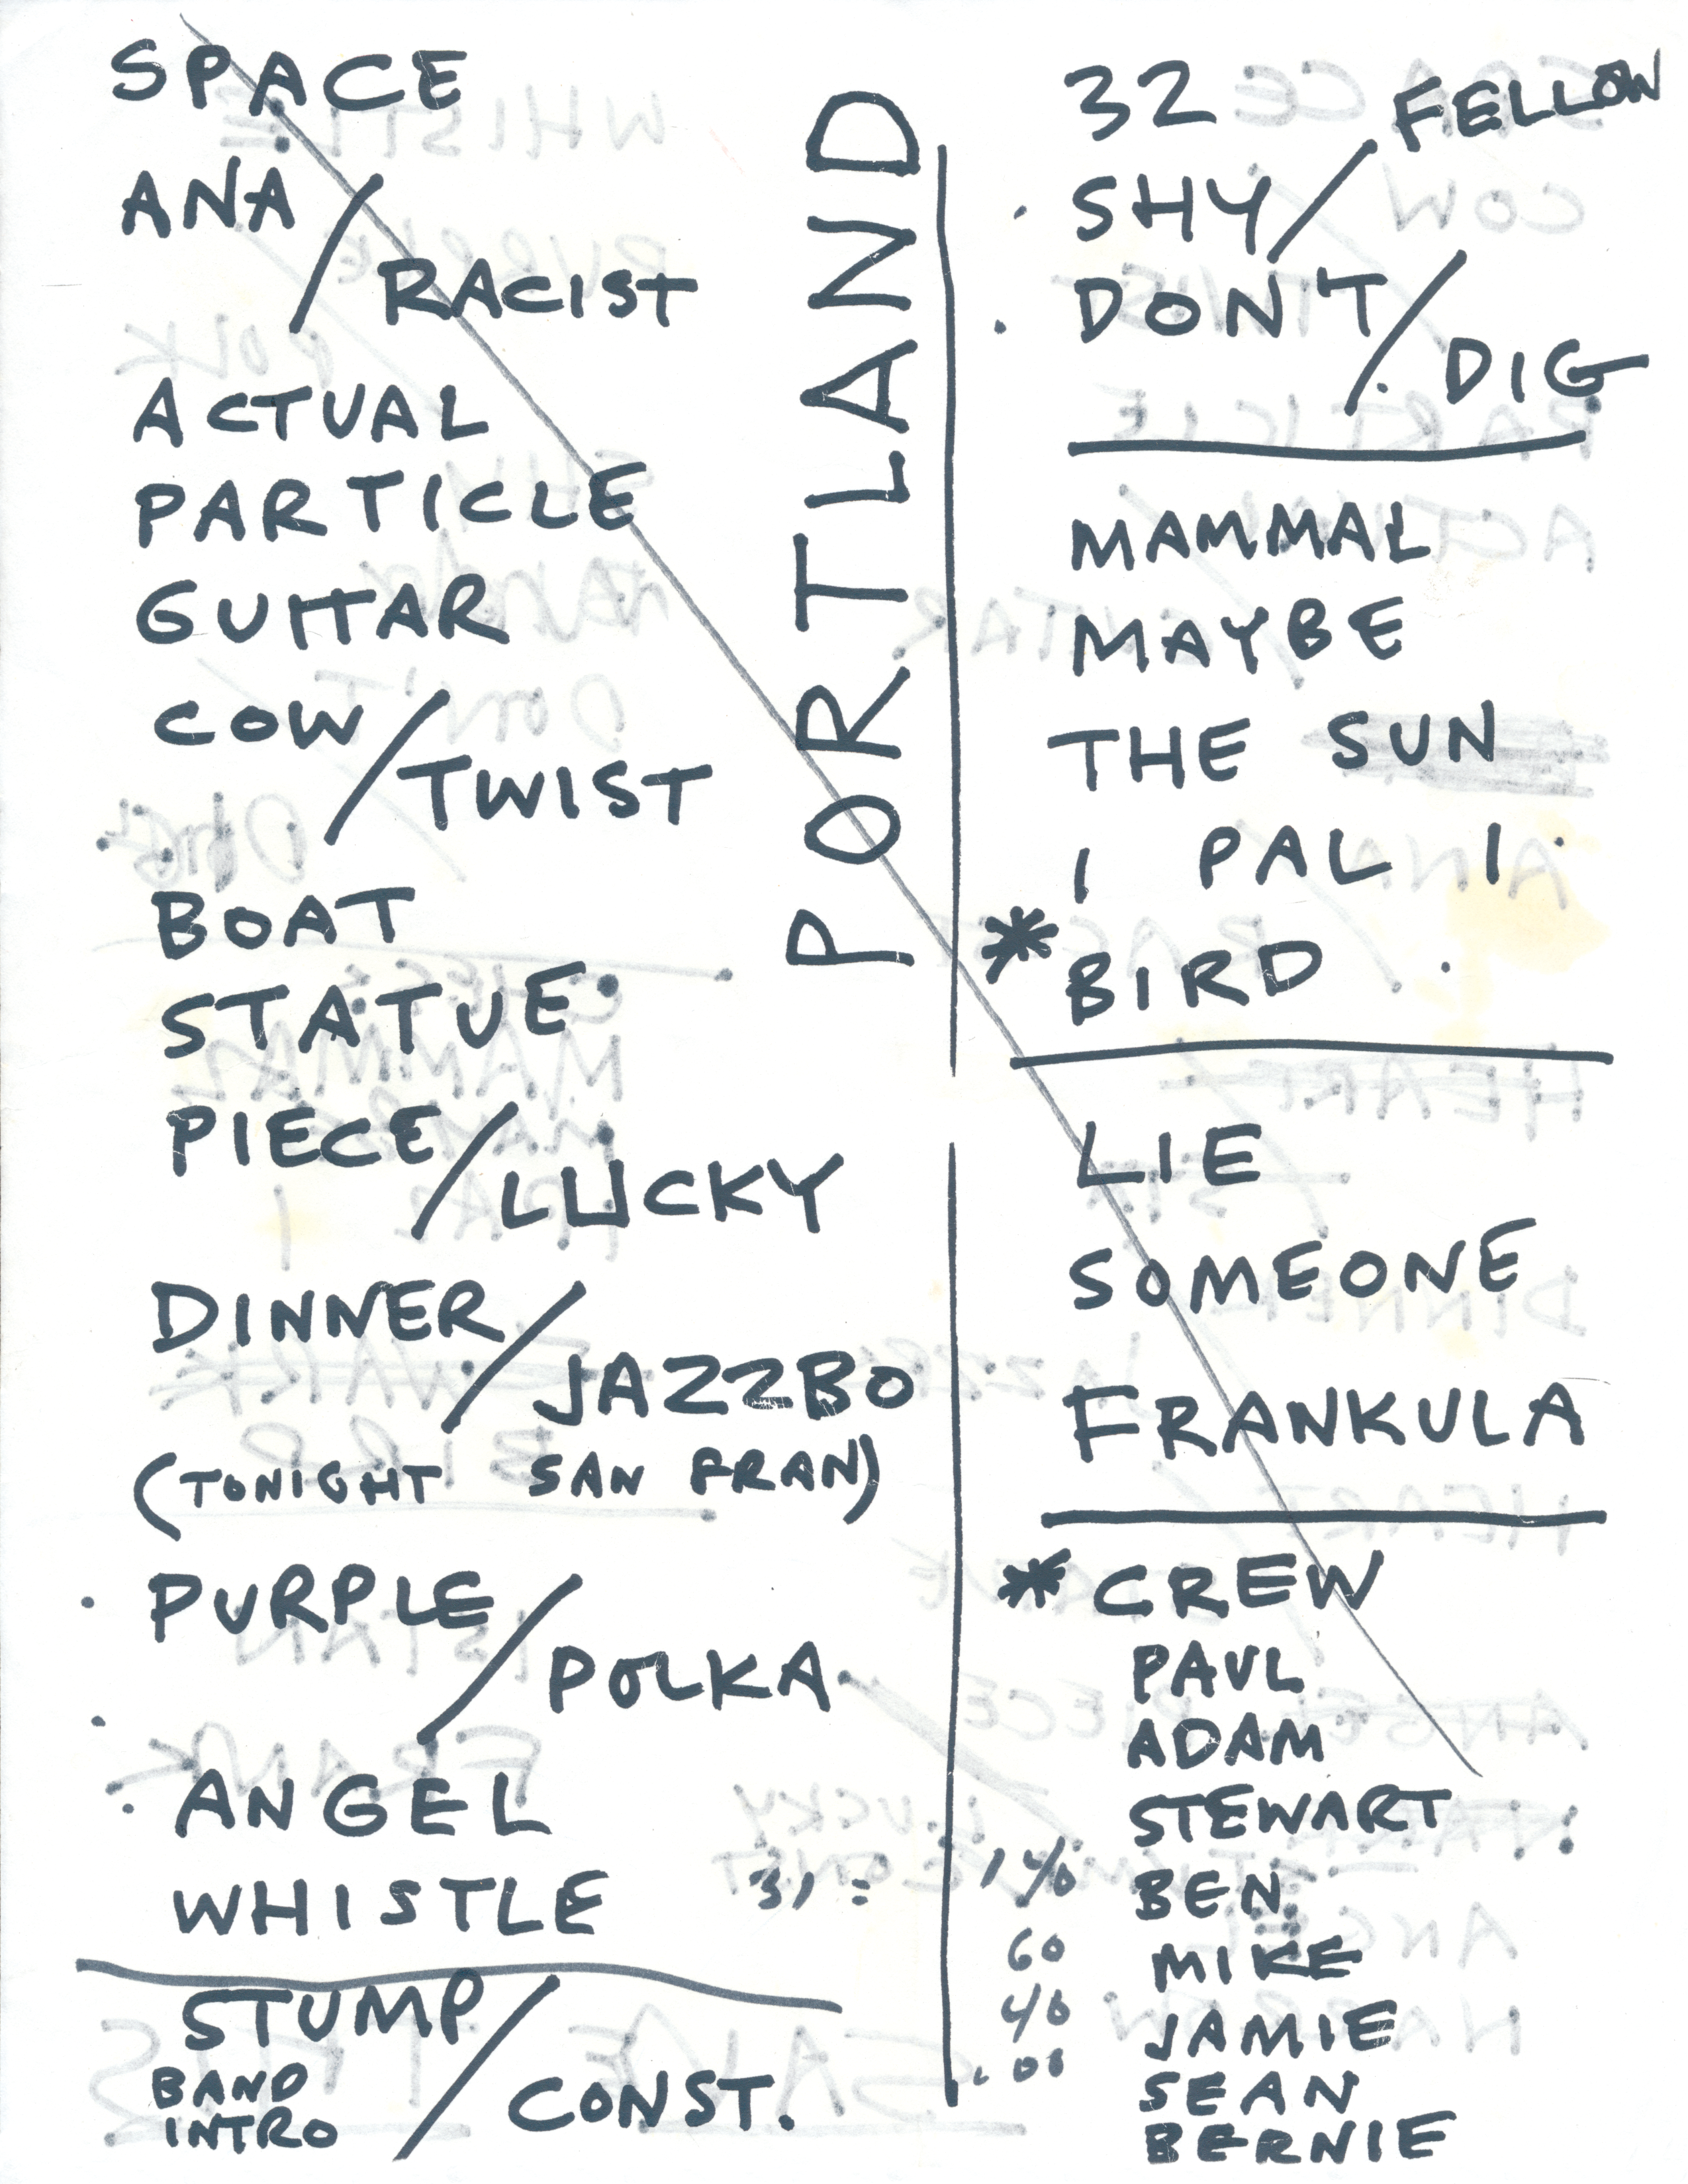 SPACE
ANA / RACIST
ACTUAL
PARTICLE
GUITAR
COW / TWIST
BOAT
STATUE
PIECE / LUCKY
DINNER / JAZZBO
(TONIGHT SAN FRAN)
PURPLE / POLKA
ANGEL
WHISTLE
STUMP / CONST.
BAND
INTRO
PORTLAND
32
SHY / FELLOW
DON'T / DIG
MAMMAL
MAYBE
THE SUN
I PAL I
* BIRD
LIE
SOMEONE
FRANKULA
* CREW
PAUL
ADAM
STEWART
BEN
MIKE
JAMIE
SEAN
BERNIE
60
40